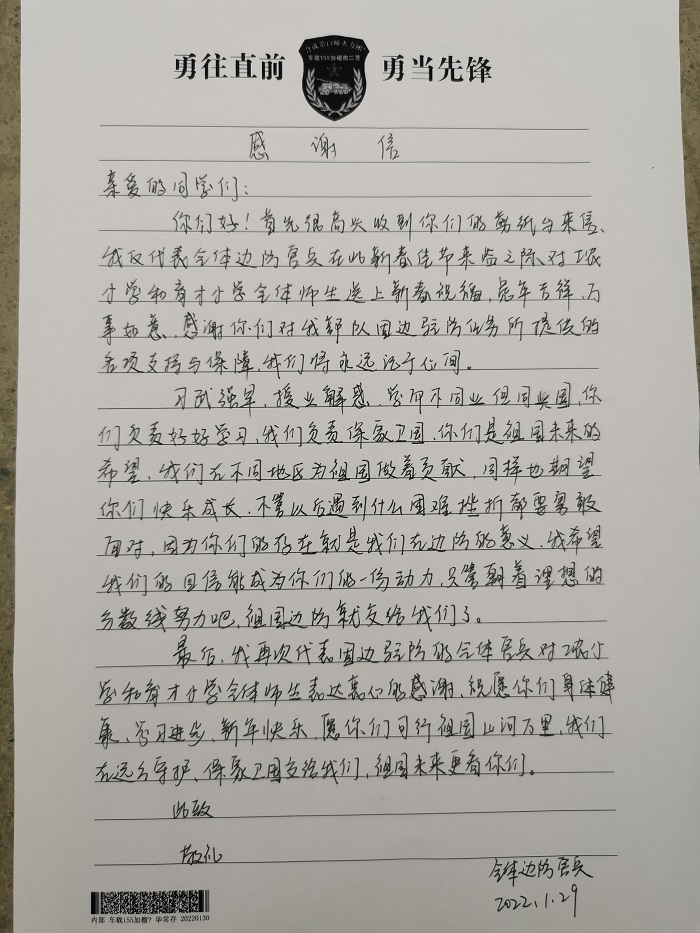 合成第11师火力团
车载155加榴炮二营
勇往直前 勇当先锋
感 谢 信
亲爱的同学们：
你们好！首先很高兴收到你们的剪纸与来信、
我仅代表全体边防官兵在此新春佳节来临之际、对工农
小学和育才小学全体师生送上新春祝福，虎年吉祥，万
事如意，感谢你们对我部队固边驻防任务所提供的
各项支持与保障，我们将永远活于心间。
习武强军，授业解惑，学而不同业但同兴国，你
们负责好好学习，我们负责保家卫国，你们是祖国未来的
希望，我们在不同地区为祖国做着贡献，同样也期望
你们快乐成长，不管以后遇到什么困难挫折都要勇敢
面对，因为你们的存在就是我们在边防的意义，我希望
我们的回信能成为你们的一份动力，只管朝着理想的
分数线努力吧，祖国边防就交给我们了。
最后，我再次代表固边驻防的全体官兵对工农小
学和育才小学全体师生表达衷心的感谢，祝愿你们身体健
康，学习进步，新年快乐，愿你们可行祖国山河万里，我们
在远方守护、保家卫国交给我们，祖国未来更看你们。
此致
敬礼
全体边防官兵
2022.1.29
内部 车载155加榴? 华常存 20220130